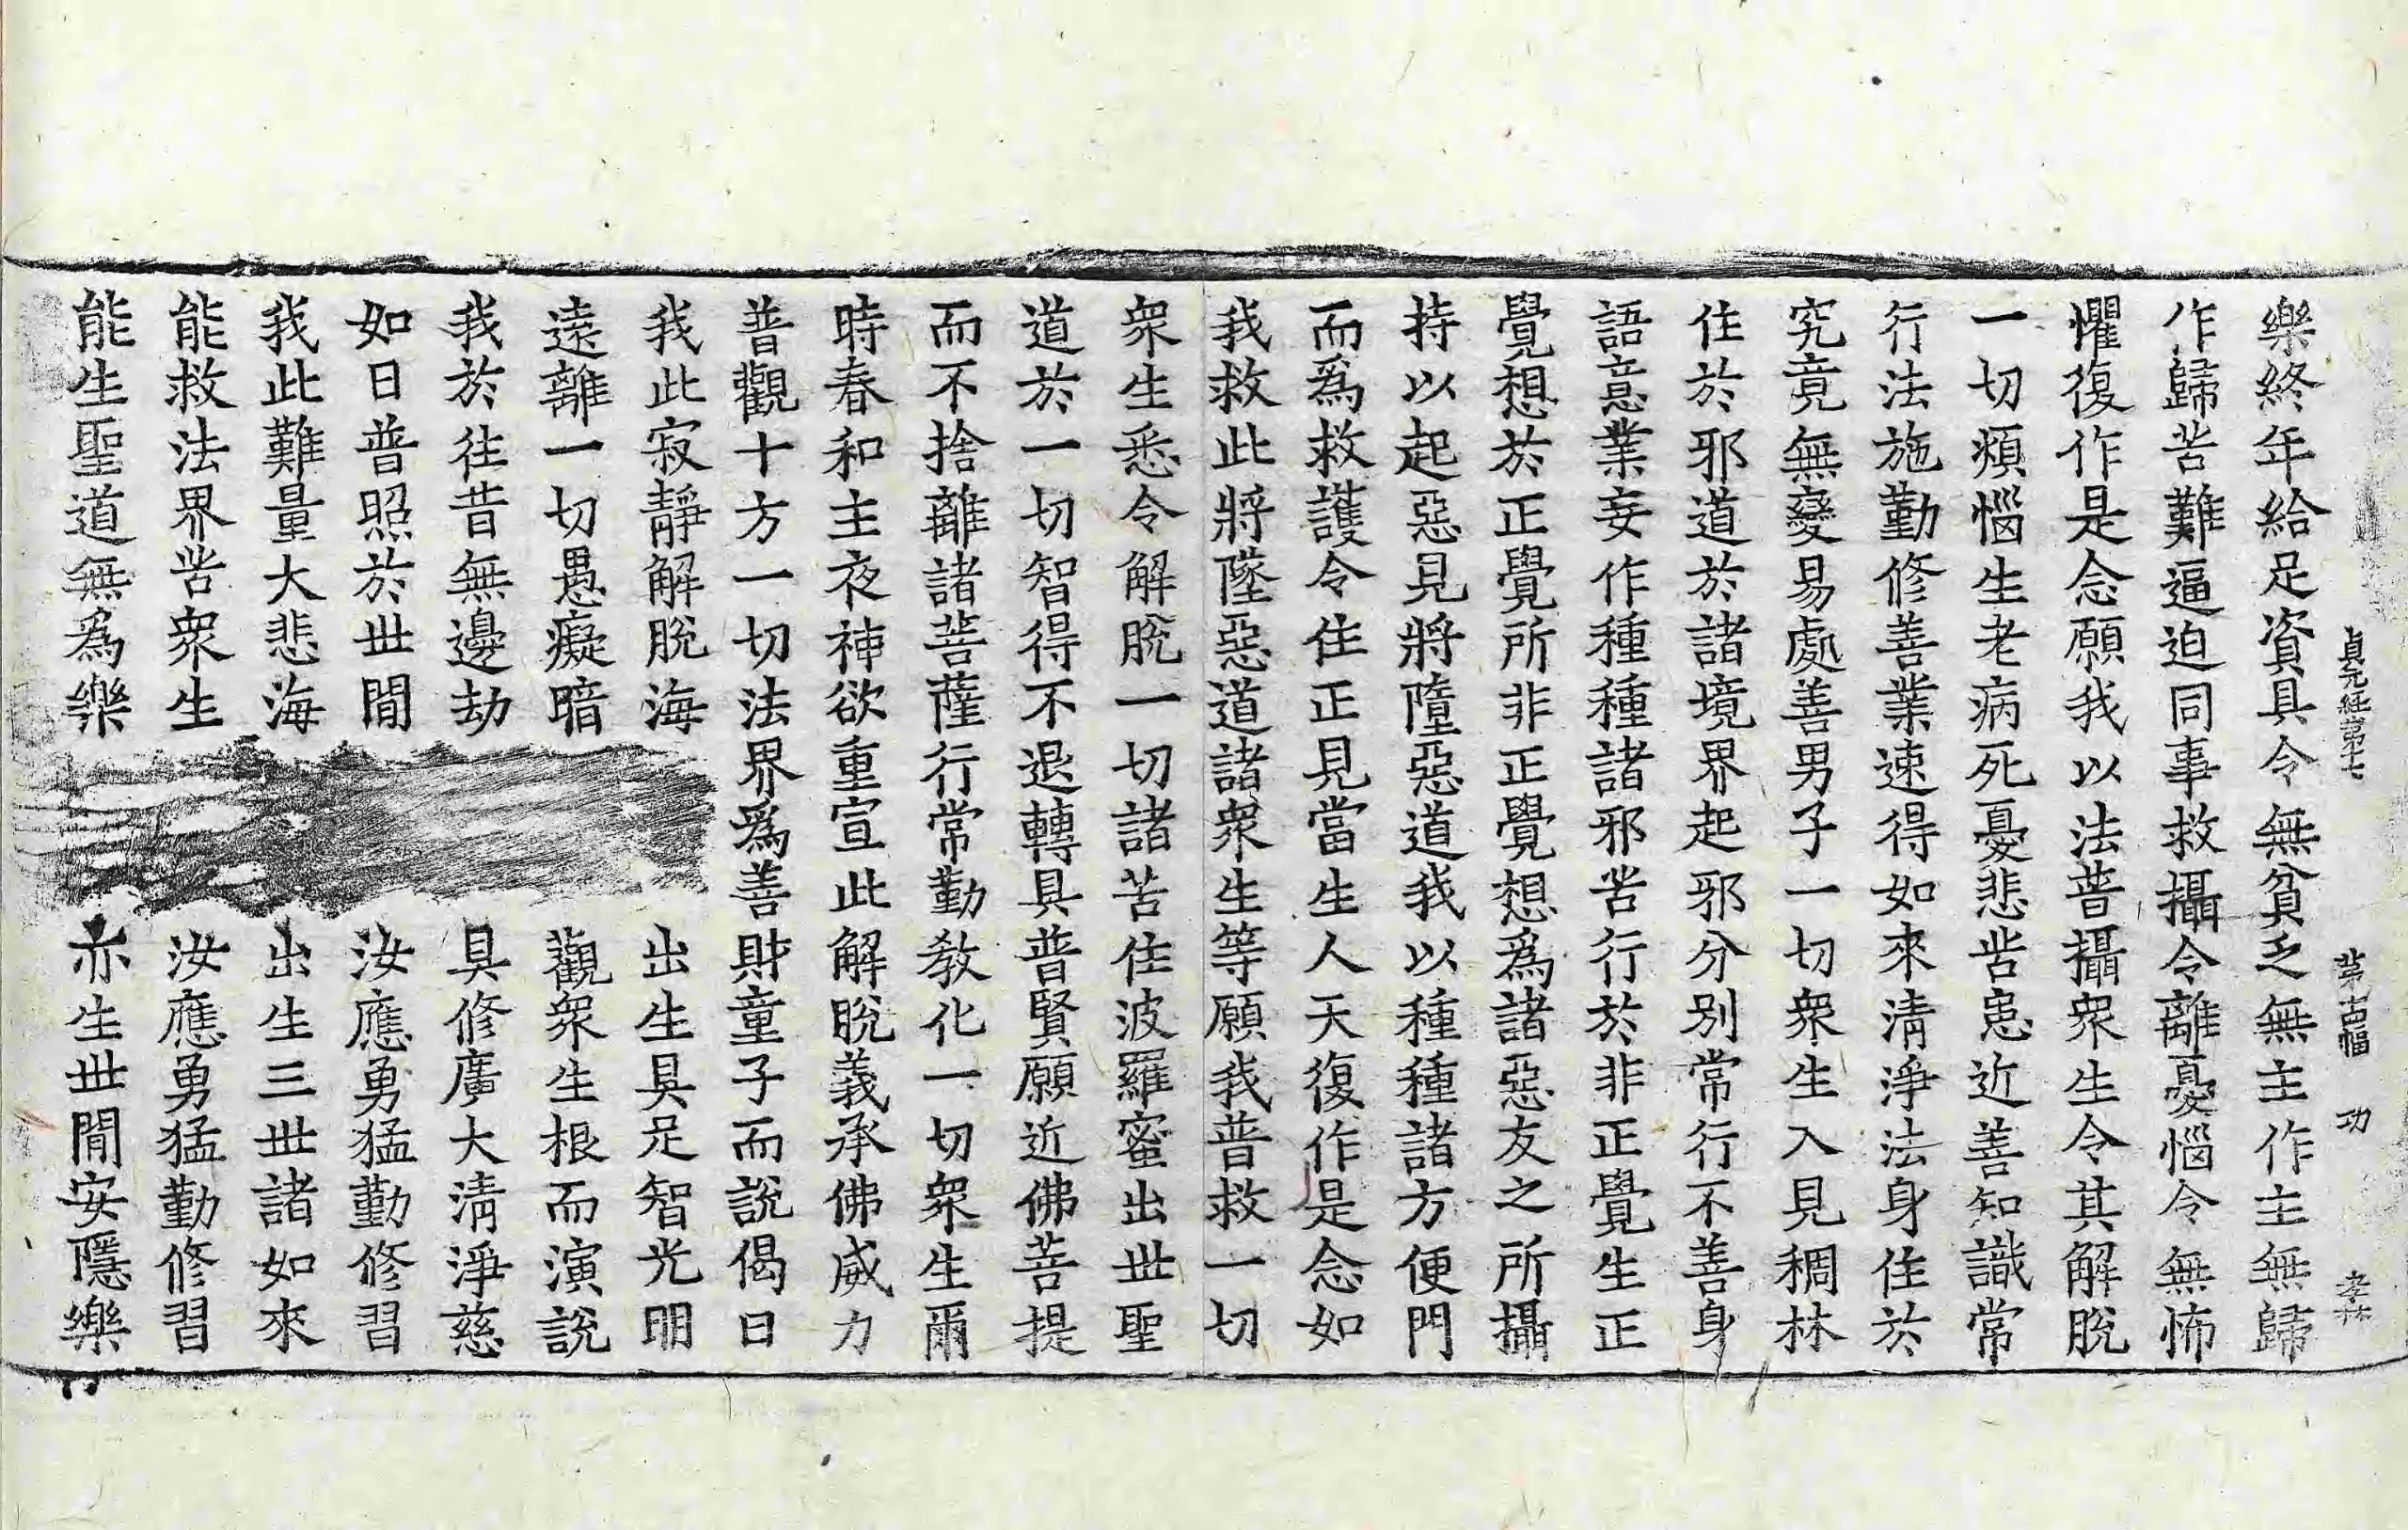 貞元経第十七 第古幅 功 孝林
樂終年給足資具令無貧乏無主作主無歸
作歸苦難逼迫同事救攝令離憂惱令無怖
懼復作是念願我以法普攝衆生令其解脫
一切煩惱生老病死憂悲苦患近善知識常
行法施勤修善業速得如來清淨法身住於
究竟無變易處善男子一切衆生入見稠林
住於邪道於諸境界起邪分別常行不善身
語意業妄作種種諸邪苦行於非正覺生正
覺想於正覺所非正覺想爲諸惡友之所攝
持以起惡見將墮惡道我以種種諸方便門
而爲救護令住正見當生人天復作是念如
我救此將墜惡道諸衆生等願我普救一切
衆生悉令解脫一切諸苦住波羅蜜出世聖
道於一切智得不退轉具普賢願近佛菩提
而不捨離諸菩薩行常勤教化一切衆生爾
時春和主夜神欲重宣此解脫義承佛威力
普觀十方一切法界爲善財童子而說偈曰
我此寂靜解脫海 出生具足智光明
遠離一切愚癡暗 觀衆生根而演說
我於往昔無邊劫 具修廣大清淨慈
如日普照於世間 汝應勇猛勤修習
我此難量大悲海 出生三世諸如來
能救法界苦衆生 汝應勇猛勤修習
能生聖道無爲樂 亦生世間安隱樂